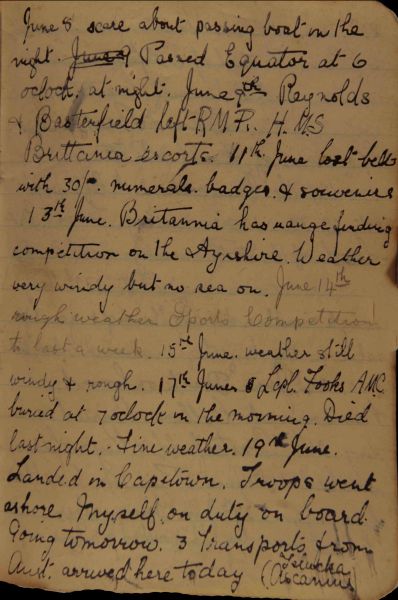 June 8 scare about passing boat in the
night. June 9 Passed Equator at 6
oclock, at night. June 9th Reynolds
& Basterfield left R.M.P. H.M.S
Brittania escorts. 11th June lost belt
with 30/- numerals. badges. & souvenirs
13th June. Britannia has range finding
competition on the Ayrshire. Weather
very windy but no sea on. June 14th
rough weather Sports Competition
to last a week. 15th June. weather still
windy & rough. 17th June Lcpl. Fooks A.M.C
buried at 7 oclock in the morning. Died
last night. - Fine weather. 19th June.
Landed in Capetown. Troops went
ashore Myself on duty on board.
Going tomorrow. 3 transports from
Aust. arrived here today (Ascanius)